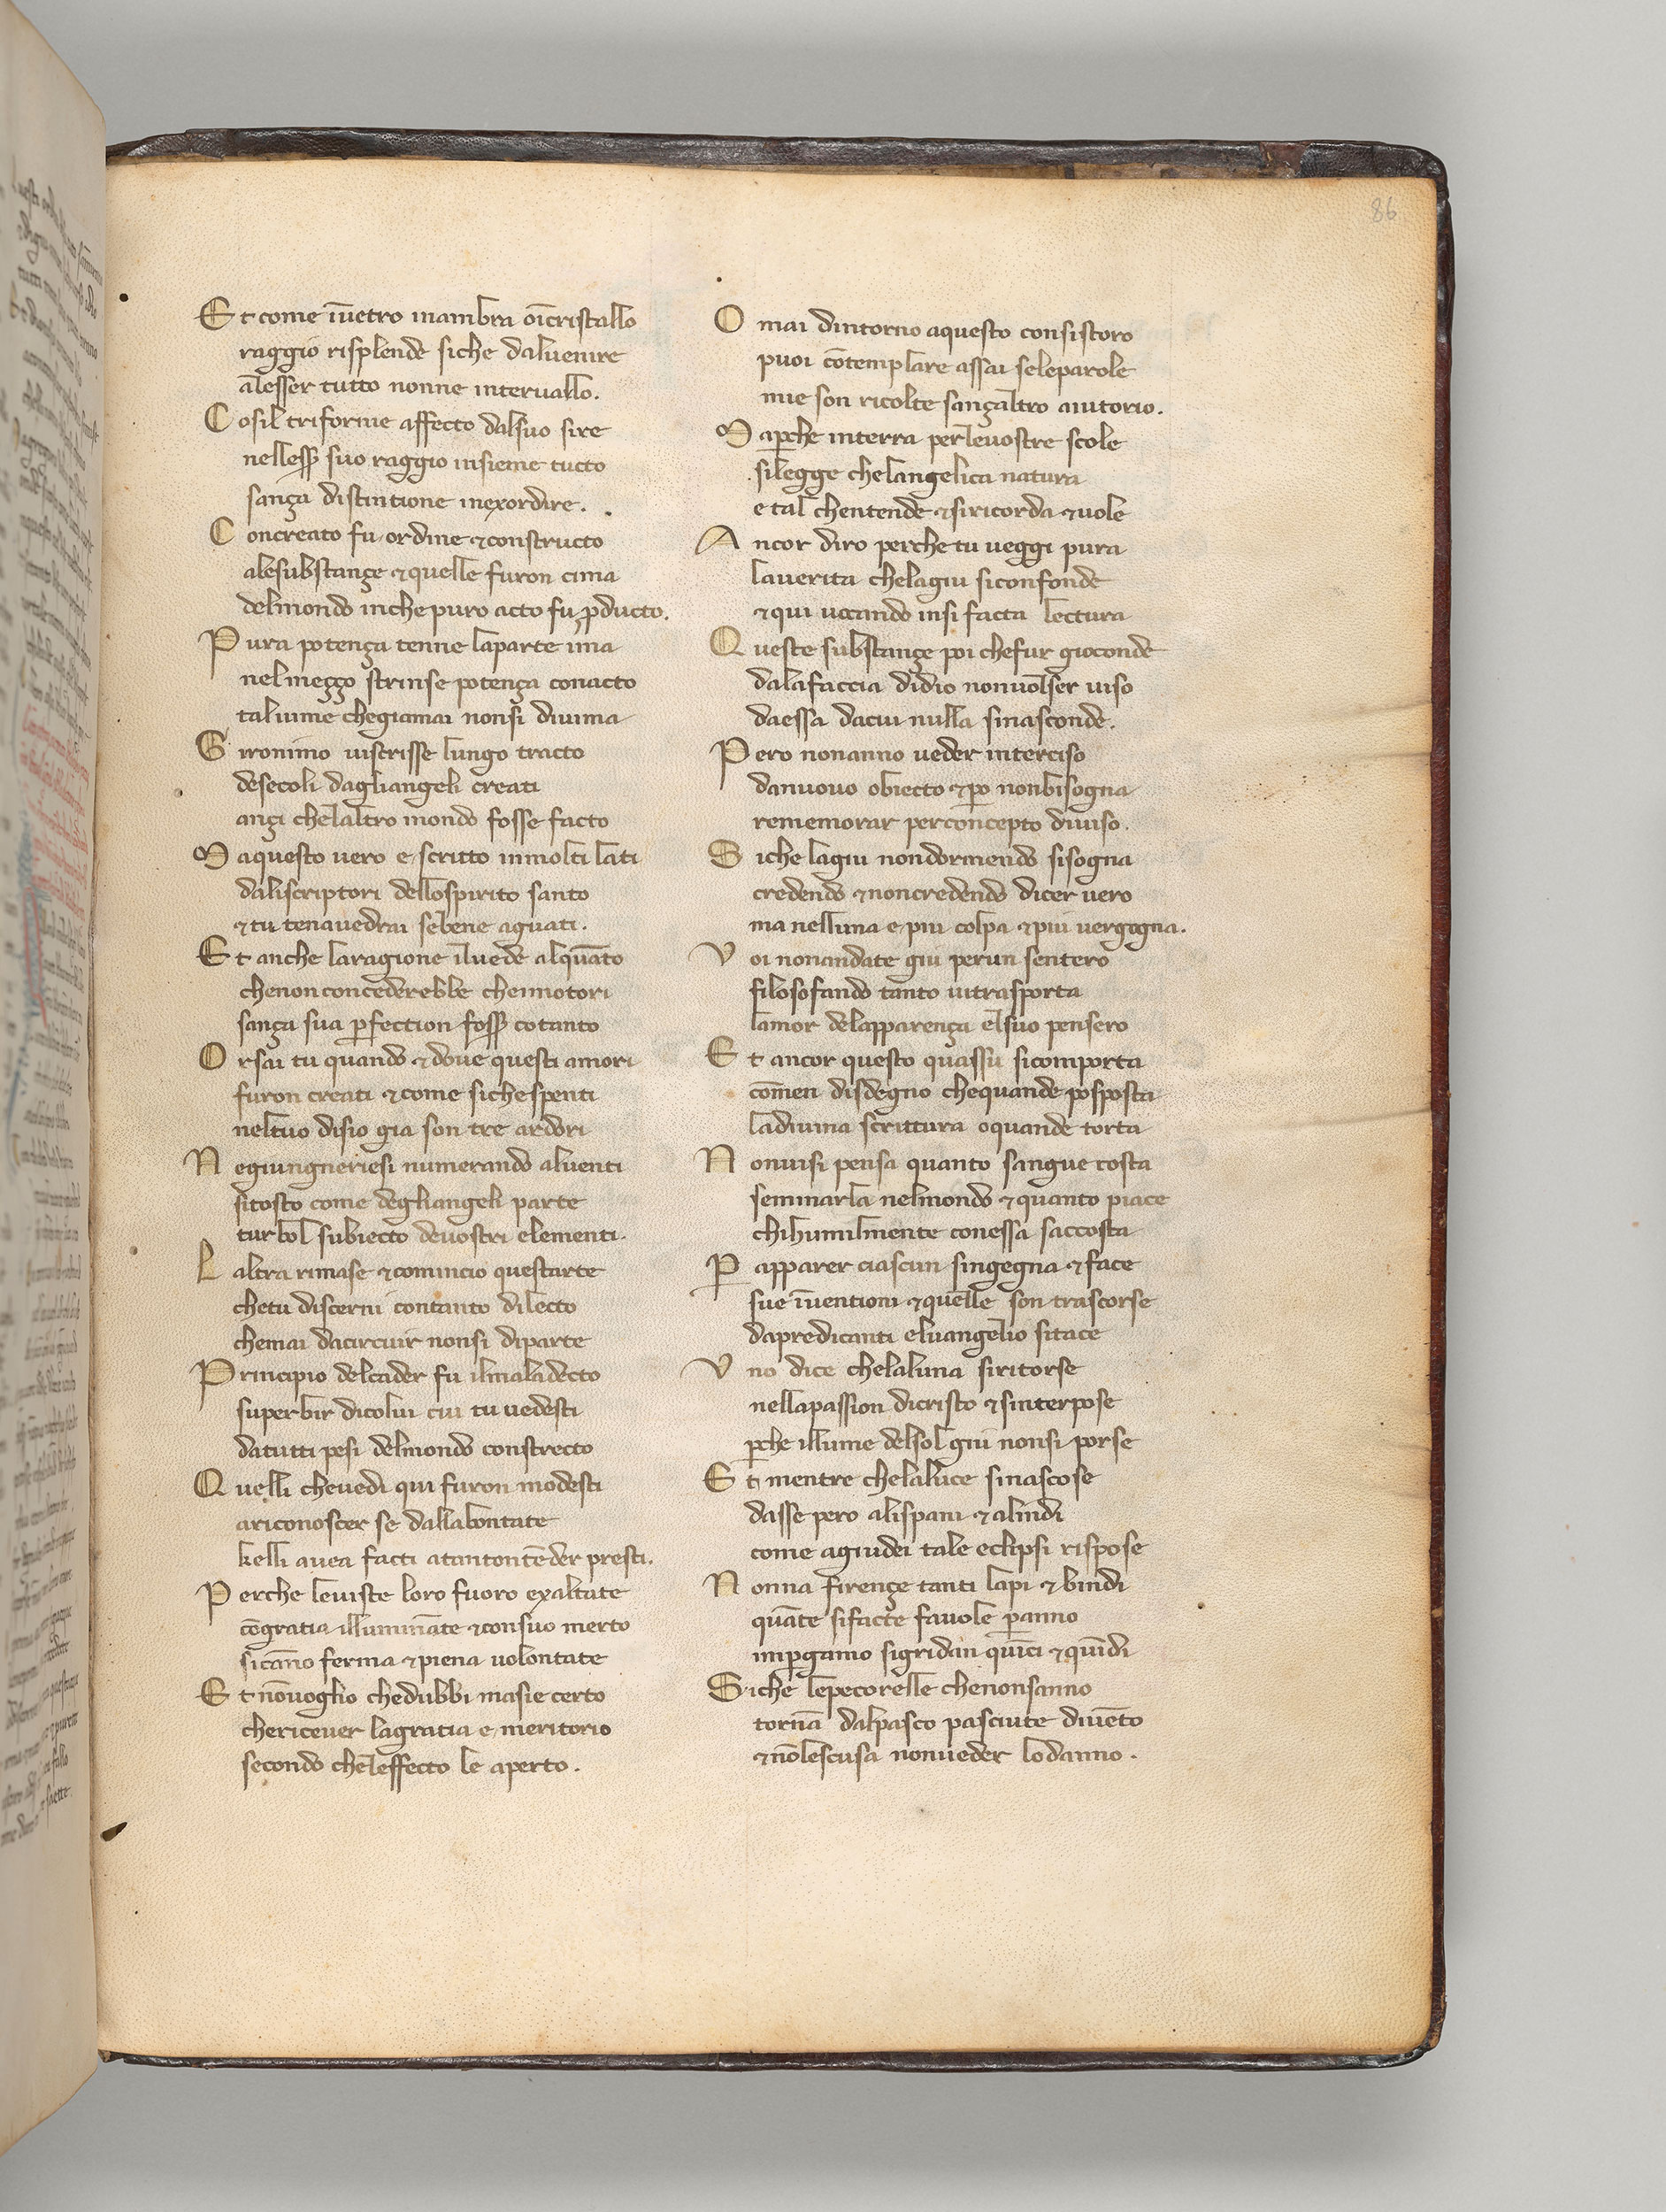 86
Et come īuetro inambra oīcristallo
raggio risplende siche daluenire
alesser tutto nonne interuallo.
Cosil triforme affecto dalsuo sire
nellesſ suo raggio insieme tucto
sança distintione inexordire.
Concreato fu ordine ⁊constructo
alesubstançe ⁊quelle furon cima
delmondo inche puro acto fu ꝓducto.
Pura potença tenne laparte ima
nelmeçço strinse potença conacto
taluime chegiamai nonsi diuima
Gironimo uiscrisse lungo tracto
desecoli dagliangeli creati
ançi chelaltro mondo fosse facto
Maquesto uero e scritto inmolti lati
daliscriptori dellospirito santo
⁊tu tenauedrai sebene aguati.
Et anche laragione iluede alquāto
chenonconcederebbe cheimotori
sança sua ꝑfection fosſ cotanto
Orsai tu quando ⁊doue questi amori
furon creati ⁊come sichespenti
neltuo disio gia son tre ardori
Negiungneriesi numerando aluenti
sitosto come degliangeli parte
turbol subiecto deuostri elementi.
Laltra rimase ⁊comincio questarte
chetu discerni contanto dilecto
chemai dacircuir nonsi diparte
Principio delcader fu ilmaladecto
superbir dicolui cui tu uedesti
datutti pesi delmondo constrecto
Quelli cheuedi qui furon modesti
ariconoscer se dallabontate
kelli auea facti atantontēder presti.
Perche leuiste loro fuoro exaltate
cōgratia illumināte ⁊consuo merto
sicāno ferma ⁊piena uolontate
Et nōuoglio chedubbi masie certo
chericeuer lagratia e meritorio
secondo cheleffecto le aperto.
Omai dintorno aquesto consistoro
puoi cōtemplare assai seleparole
mie son ricolte sançaltro aiutorio.
Maꝑche interra perleuostre scole
silegge chelangelica natura
e tal chentende ⁊siricorda ⁊uole
Ancor diro perche tu ueggi pura
lauerita chelagiu siconfonde
⁊qui uocando insi facta lectura
Queste substançe poi chefur gioconde
dalafaccia didio nonuolser uiso
daessa dacui nulla sinasconde.
Pero nonanno ueder interciso
danuouo obiecto ⁊ꝑo nonbisogna
rememorar perconcepto diuiso.
Siche lagiu nondormendo sisogna
credendo ⁊noncredendo dicer uero
ma nelluna e piu colpa ⁊piu uergogna.
Voi nonandate giu perun sentero
filosofando tanto uitrasporta
lamor delapparença elsuo pensero
Et ancor questo quassu sicomporta
cōmen disdegno chequande posposta
ladiuina scrittura oquande torta
Nonuisi pensa quanto sangue costa
seminarla nelmondo ⁊quanto piace
chihumilmente conessa saccosta
Ꝑ apparer ciascun singegna ⁊face
sue īuentioni ⁊quelle son trascorse
dapredicanti eluangelio sitace
Vno dice chelaluna siritorse
nellapassion dicristo ⁊sinterpose
ꝑche illume delsol giu nonsi porse
Et mentre chelaluce sinascose
dasse pero alispani ⁊alindi
come agiudei tale eclipsi rispose
Nonna firençe tanti lapi ⁊ bindi
quāte sifacte fauole ꝑanno
inꝑgamo sigridan quīci ⁊quīdi
Siche lepecorelle chenonsanno
tornā dalpasco pasciute diuēto
⁊nōlescusa nonueder lodanno.